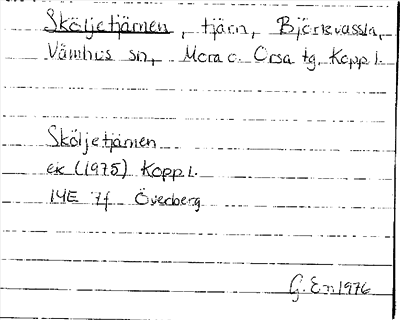 Sköljetjärnen, tjärn, Björkvassla,
Våmhus sn, Mora o. Orsa tg, Kopp l.
Sköljetjärnen
ek (1975) Kopp l.
14E 7f Överberg
G. En 1976